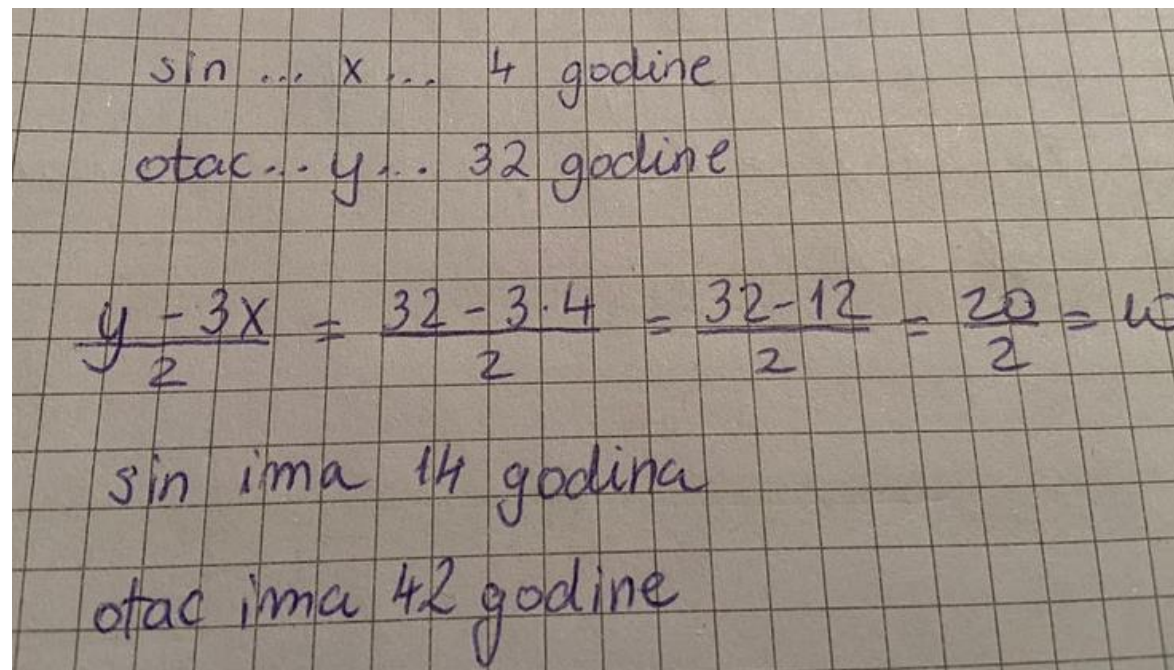 sin ... x ... 4 godine
otac... y... 32 godine
y - 3x / 2 = 32 - 3·4 / 2 = 32 - 12 / 2 = 20 / 2 =
sin ima 14 godina
otac ima 42 godine